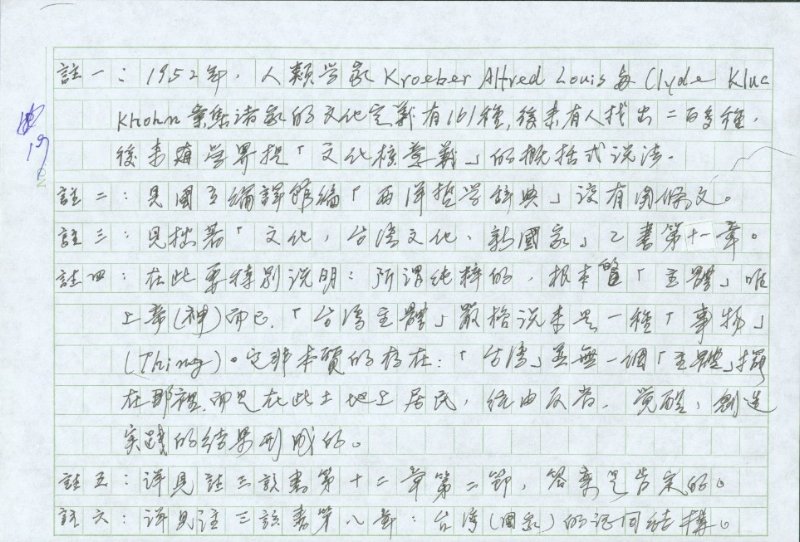 註一：1952年，人類学家Kroeber Alfred Louis與Clyde Kluc
Khohn彙集諸家的文化定義有161種，後来有人找出二百多種，
後来學界提「文化核意義」的概括式说法。
註二：見國立編譯館編「西洋哲学辞典」该有關條文。
註三：見拙著「文化，台湾文化，新國家」乙書第十一章。
註四：在此要特别说明：所谓純粹的，根本「主體」唯
上帝(神)而已，「台湾主體」嚴格说来是一種「事物」
(Thing)。它非本質的存在：「台湾」並無一個「主體」擺
在那裡，而是在此土地上居民，經由反省，覚醒，創造
实践的结果形成的。
註五：详見註三該書第十二章第二節，答案是肯定的。
註六：详見注三該書第八章：台湾(國家)的認同結構。
19